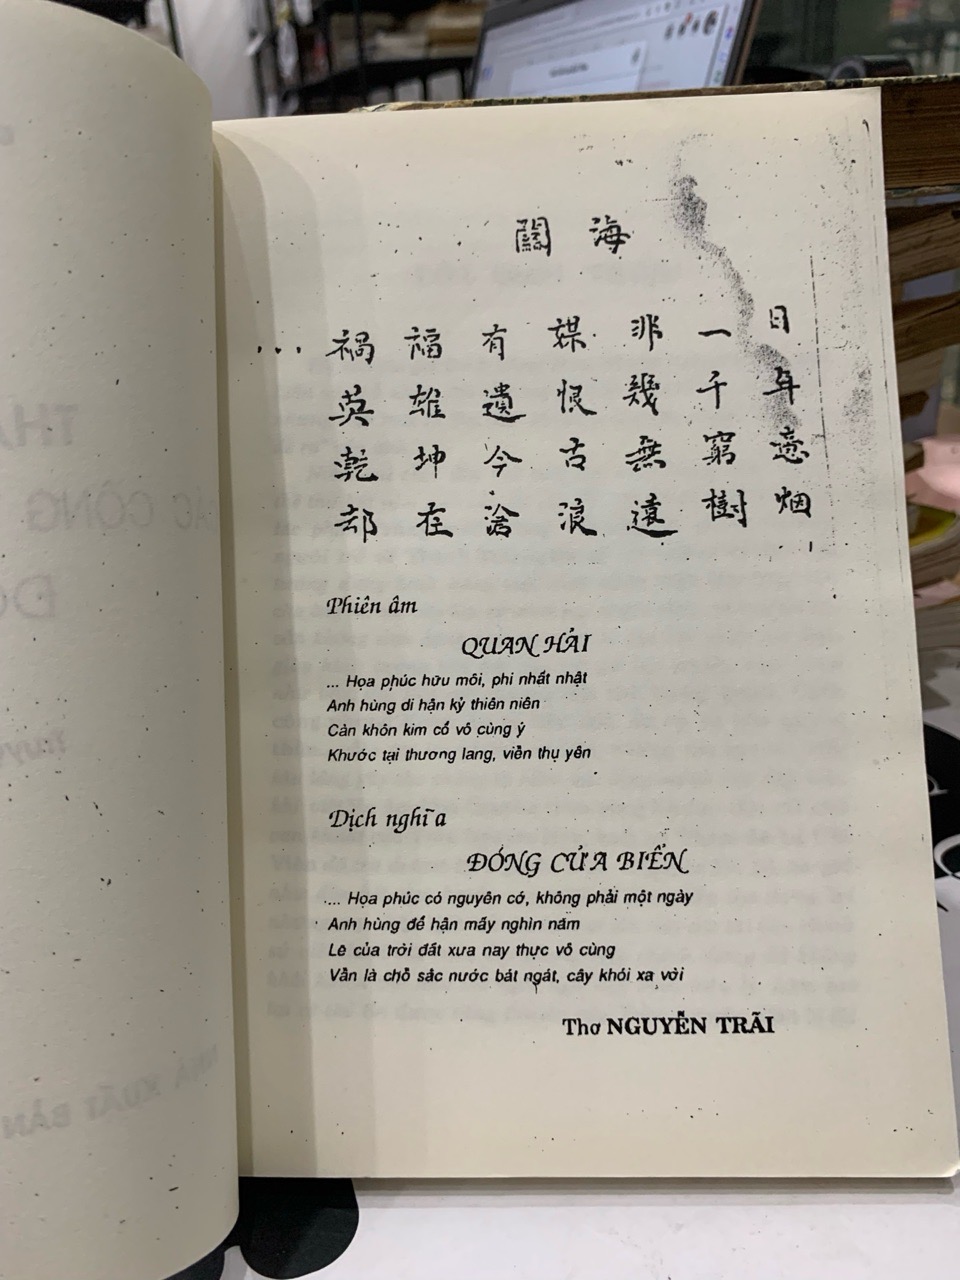 關海
...禍福有媒非一日
英雄遺恨幾千年
乾坤今古無窮意
却在滄浪遠樹烟
Phiên âm
QUAN HẢI
... Họa phúc hữu môi, phi nhất nhật
Anh hùng di hận kỷ thiên niên
Càn khôn kim cổ vô cùng ý
Khước tại thương lang, viễn thụ yên
Dịch nghĩa
ĐÓNG CỬA BIỂN
.... Họa phúc có nguyên cớ, không phải một ngày
Anh hùng để hận mấy nghìn năm
Lẽ của trời đất xưa nay thực vô cùng
Vẫn là chỗ sắc nước bát ngát, cây khói xa vời
Thơ NGUYỄN TRÃI